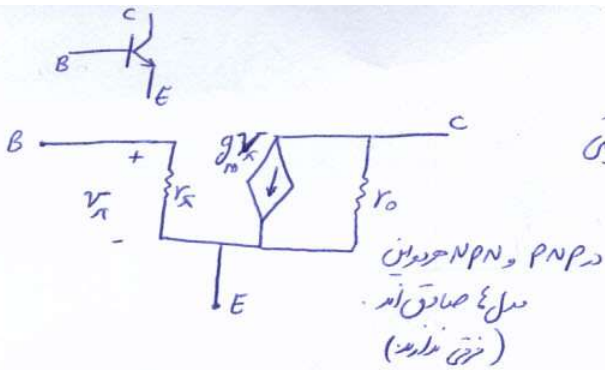 C
B
E
B
+
vπ
-
rπ
gmVπ
C
ro
E
در PNP و NPN هر دو این
مدل ها صادق اند.
(فرقی ندارند)